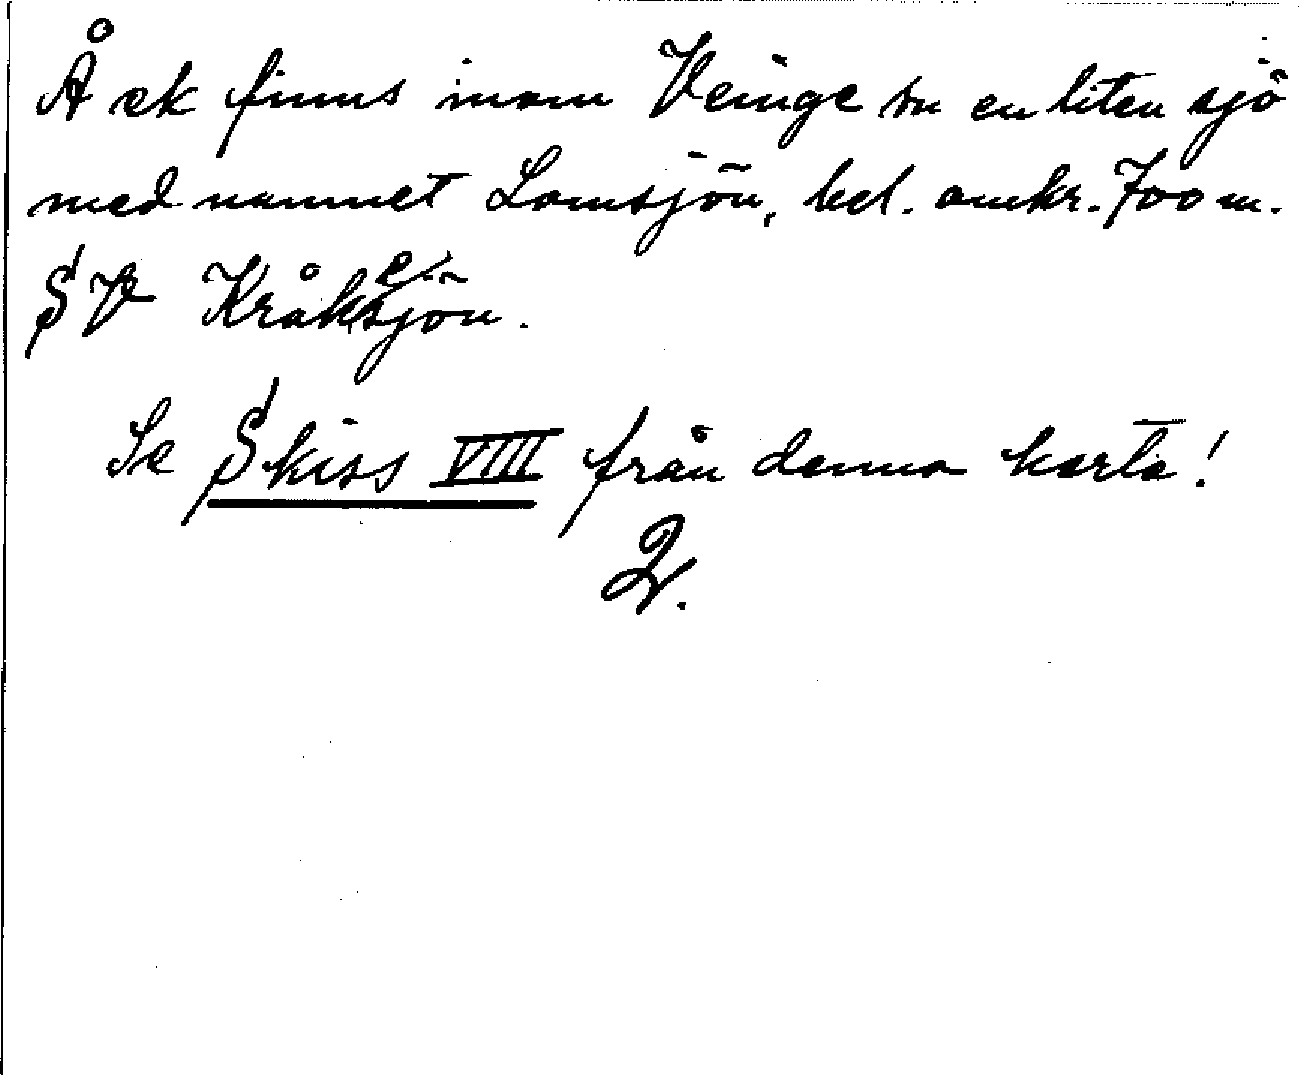 Å ek finns inom Veinge sn en liten sjö
med namnet Lomsjön, bel. omkr. 700 m.
SV Kråkesjön.
Se Skiss VIII från denna karta!